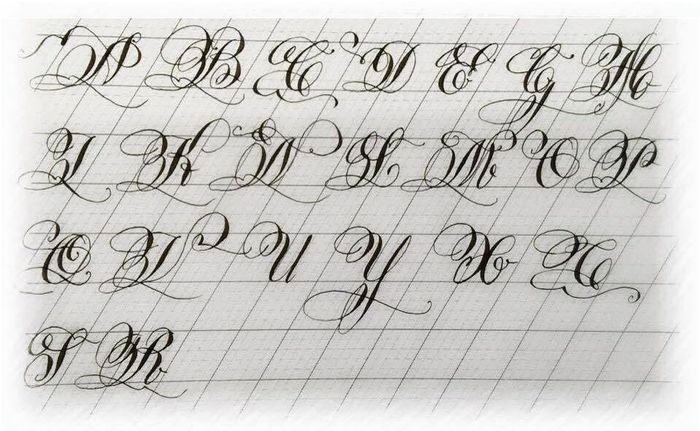 A B C D E G H
I K N L M O P
Q T U Y X
S R